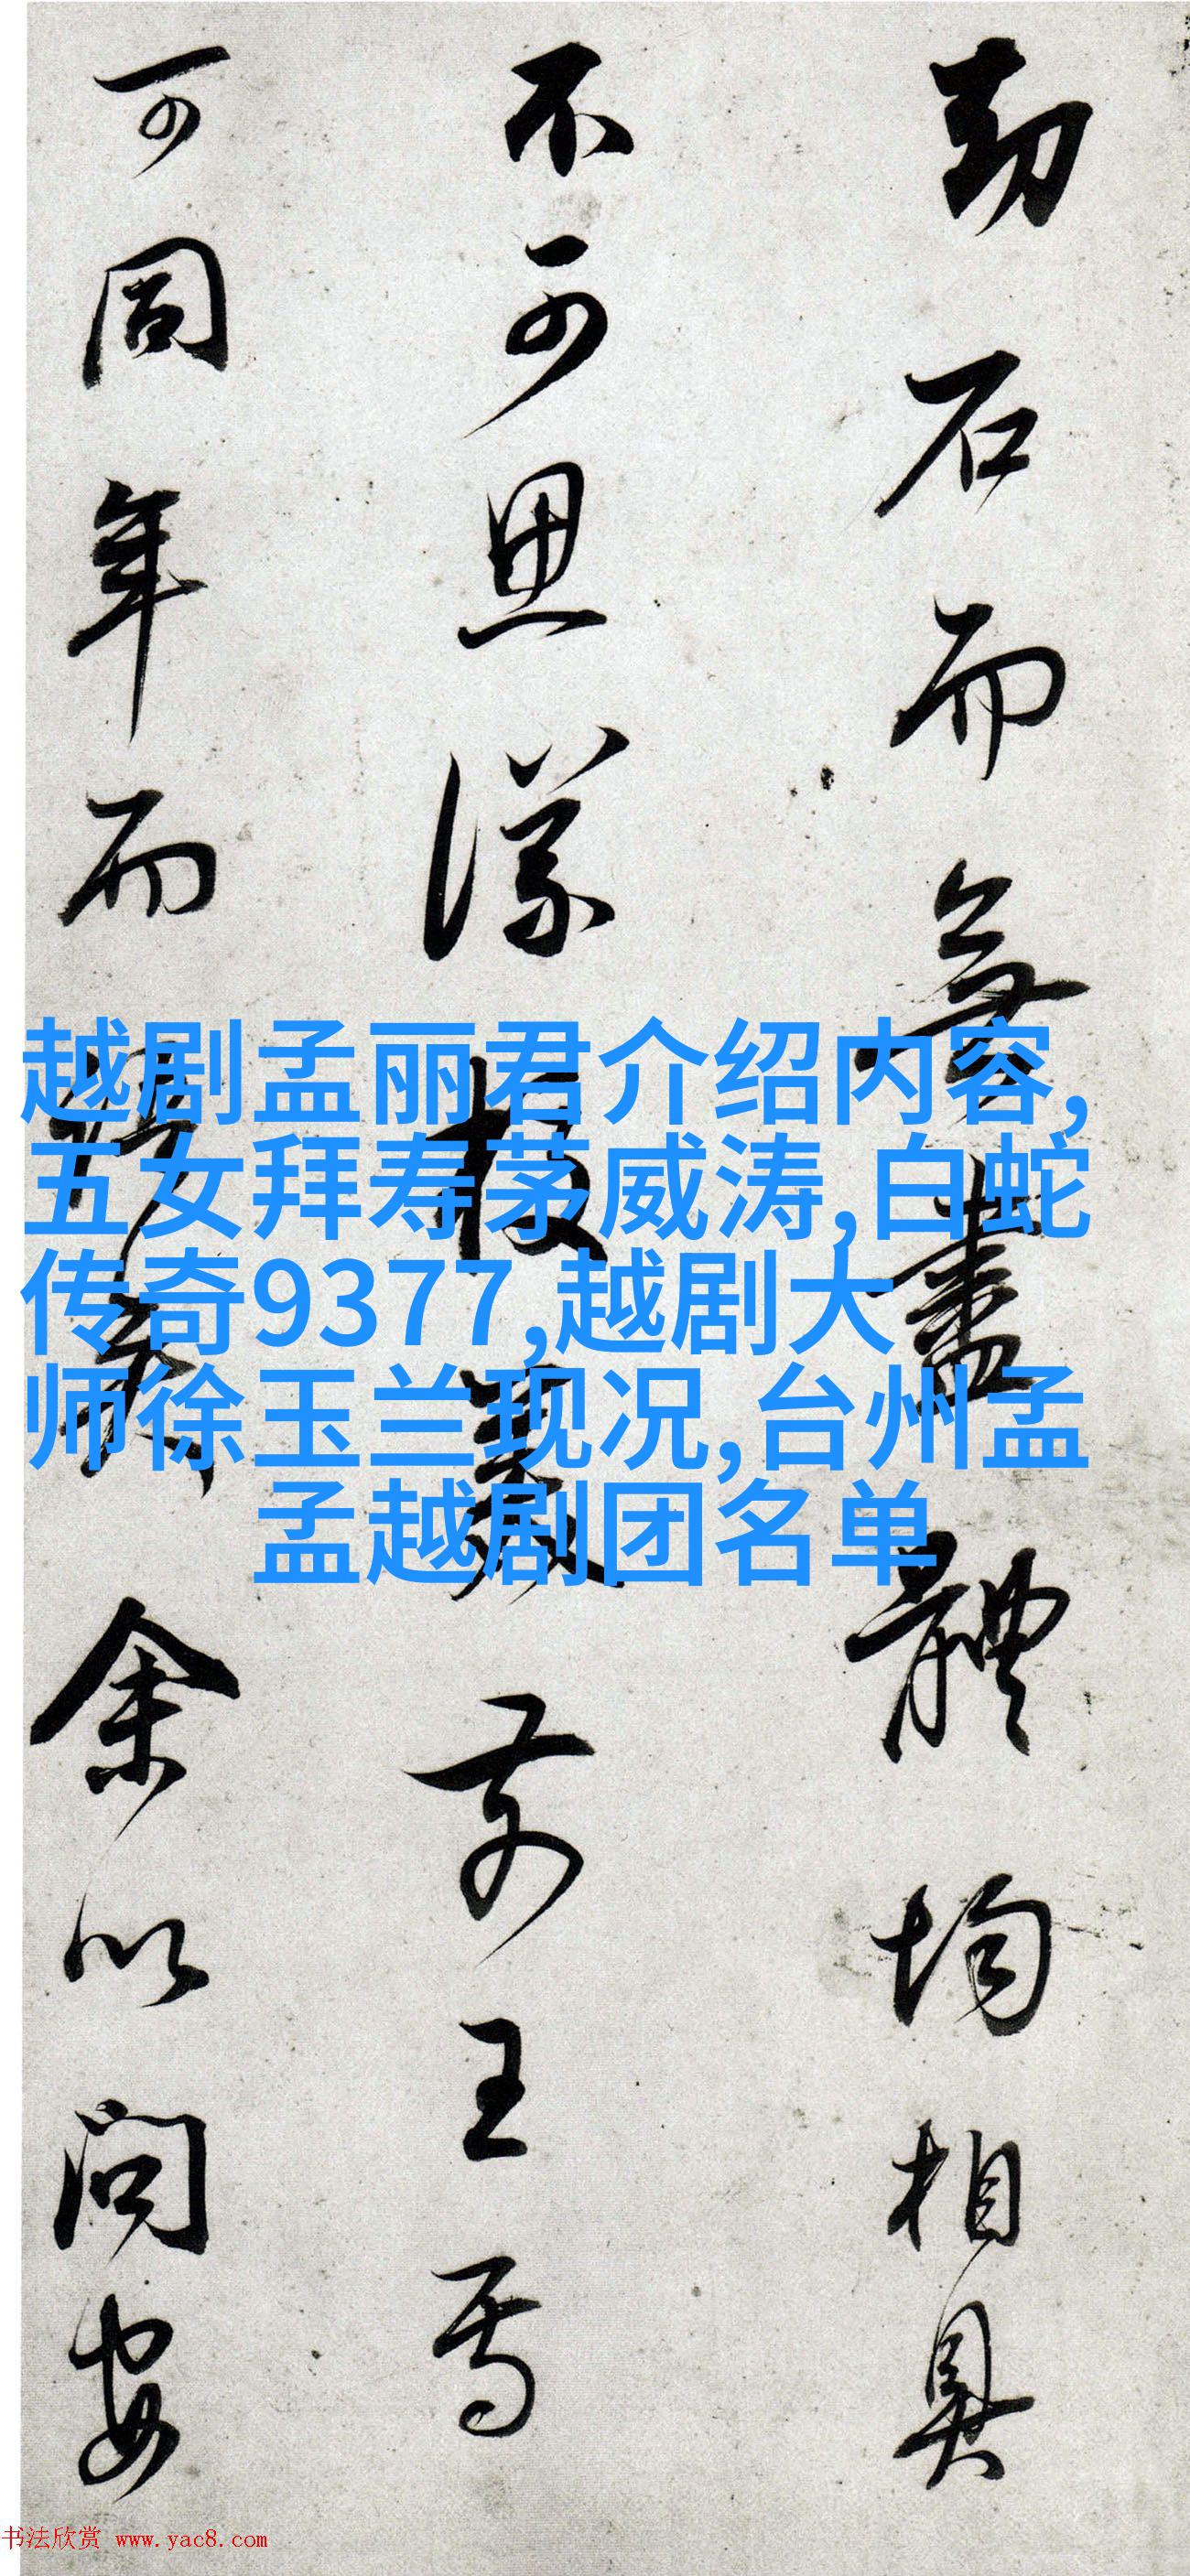 劫石而無盡體均相具
不可思議校義前王焉
可同年而語矣余以問安
越剧孟丽君介绍内容,
五女拜寿茅威涛,白蛇
传奇9377,越剧大
师徐玉兰现况,台州孟
孟越剧团名单
书法欣赏 www.yac8.com